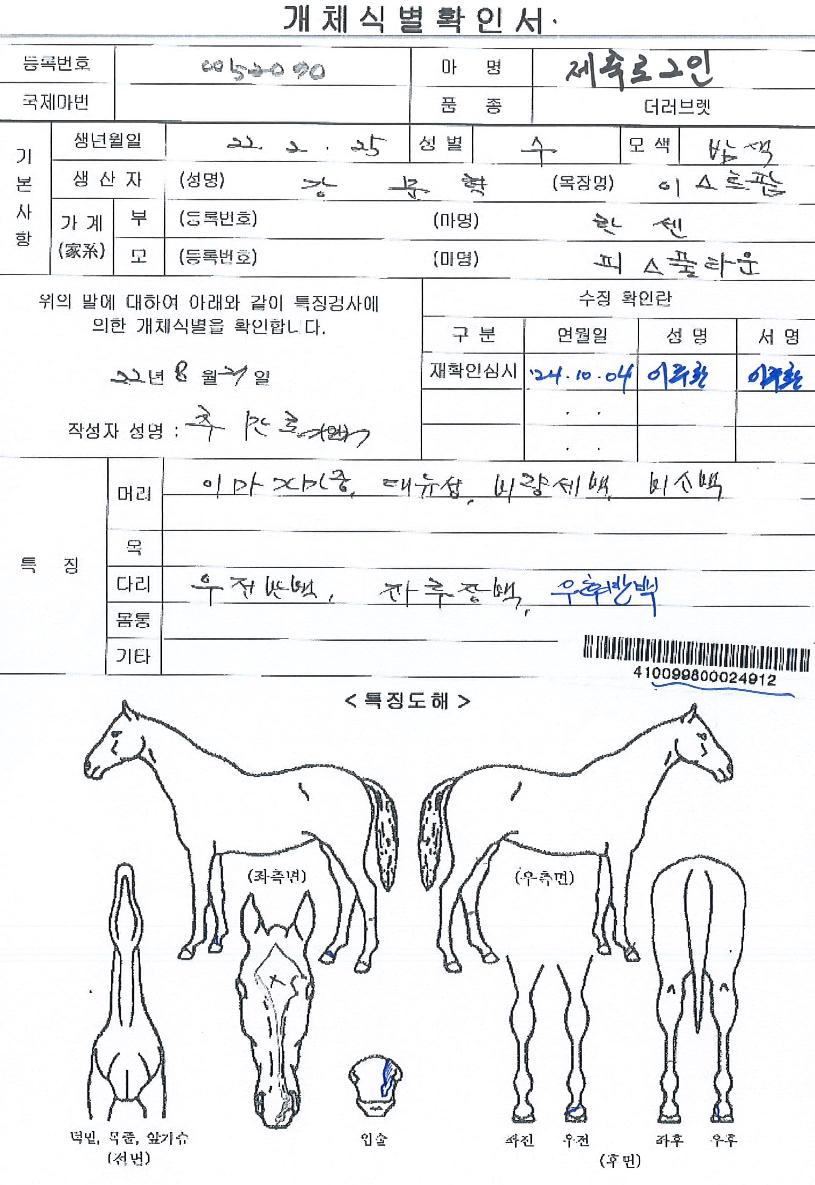 개체식별확인서.
등록번호 0052090 마 명 제축로그인
국제마번 품 종 더러브렛
기본사항
생년월일 22. 2. 25 성별 수 모색 밤색
생산자 (성명) 강 문 혁 (목장명) 이스트팜
가계 (家系) 부 (등록번호) (마명) 한센
모 (등록번호) (마명) 피스풀타운
위의 말에 대하여 아래와 같이 특징검사에
의한 개체식별을 확인합니다.
22년 8월 21일
작성자 성명 :
수징 확인란
구 분 연월일 성 명 서 명
재확인심시 '24.10.04
. .
. .
특 징
머리 이마 대유성, 비량세백, 비소백
목
다리 우전반백, 우후반백
몸통
기타
410099800024912
<특징도해>
(좌측면) (우측면)
턱밑, 목줄, 앞가슴 (전면)
입술
좌전 우전 좌후 우후
(후면)